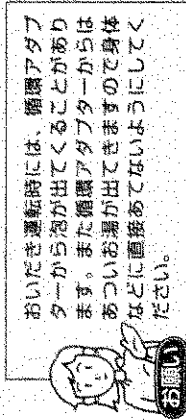 おいだき運転時には、循環アダプ
ターから泡が出てくることがあり
ます。また循環アダプターからは
あついお湯が出てきますので身体
などに直接あてないようにしてく
ださい。
お願い